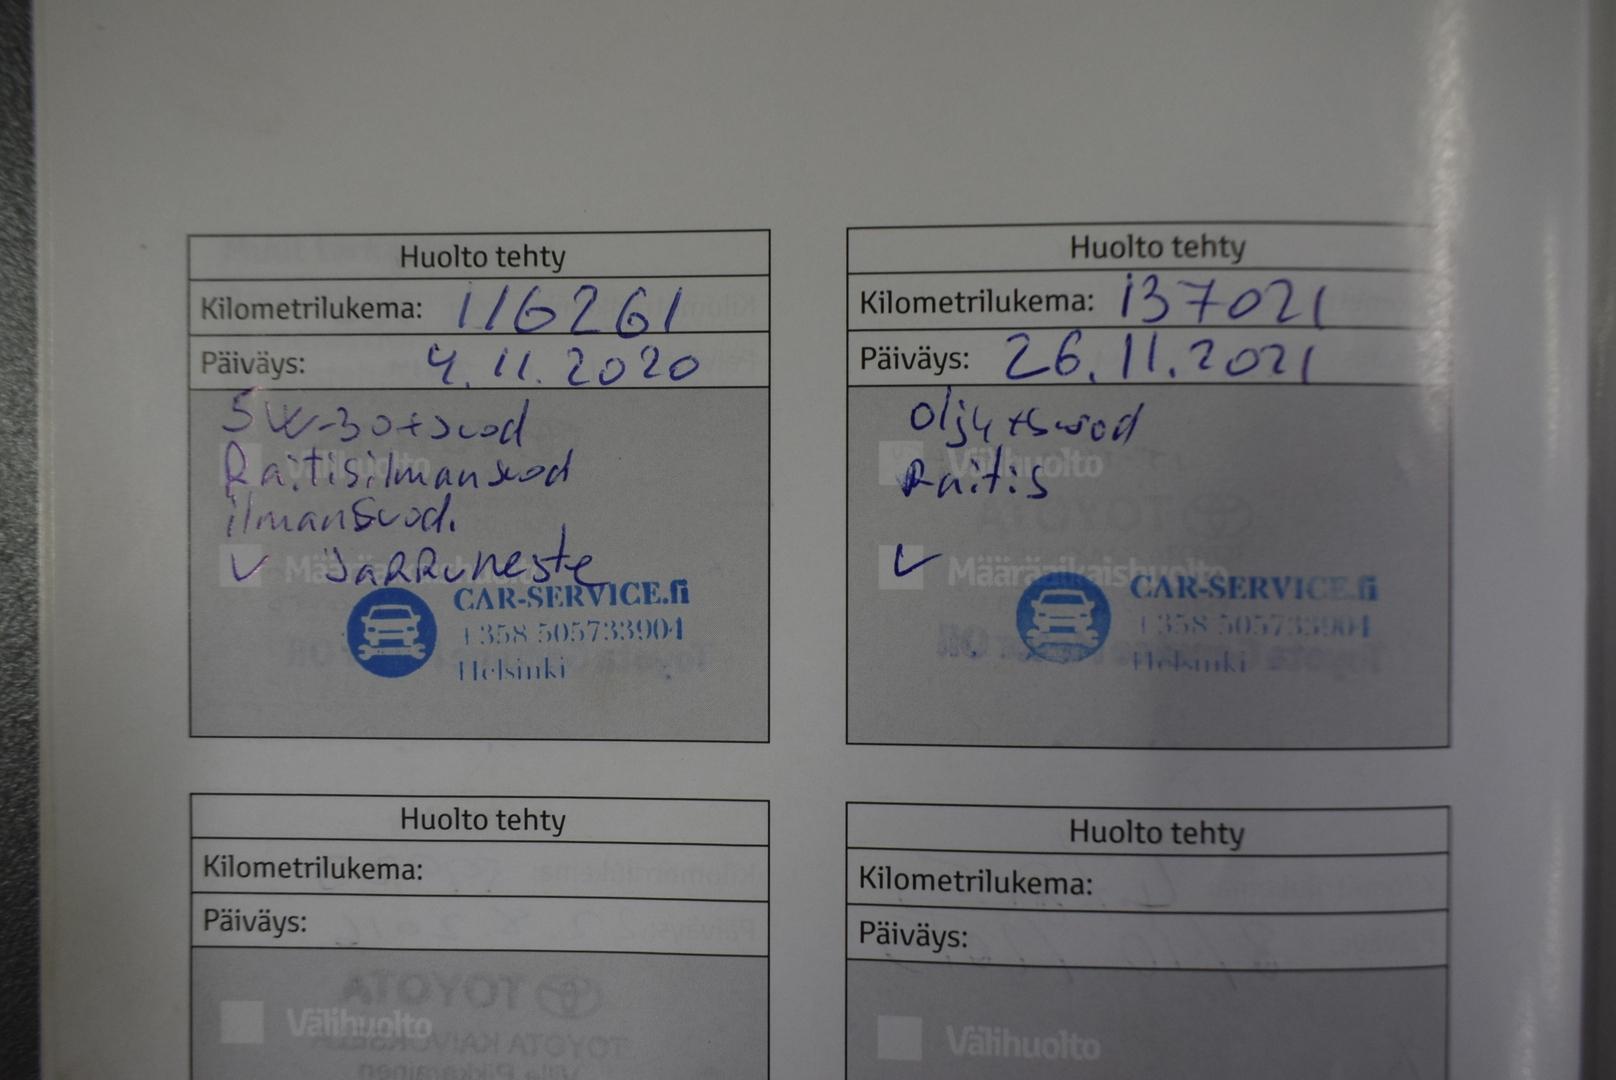 Huolto tehty
Kilometrilukema: 116261
Päiväys: 4.11.2020
5W-30+suod
Raitisilmansuod
ilmansuod.
Välihuolto
✓ Jarruneste
CAR-SERVICE.fi
+358 505733904
Helsinki
Huolto tehty
Kilometrilukema: 137021
Päiväys: 26.11.2021
Öljy+suod
Välihuolto
Raitis
✓ Määräaikaishuolto
CAR-SERVICE.fi
+358 505733904
Helsinki
Huolto tehty
Kilometrilukema:
Päiväys:
Välihuolto
Huolto tehty
Kilometrilukema:
Päiväys:
Välihuolto